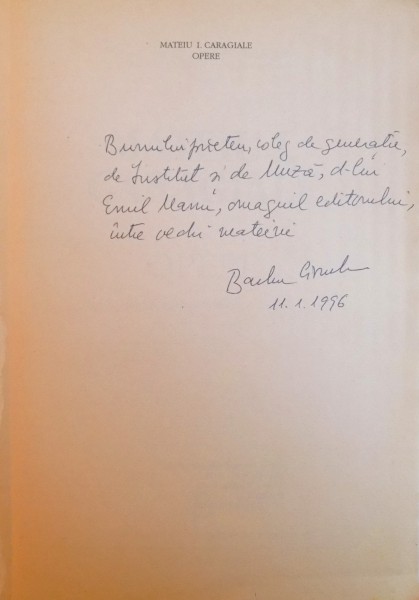 MATEIU I. CARAGIALE
OPERE
Bunului prieten, coleg de generație,
de Institut și de Muză, d-lui
Emil Manu, omagiul editorului,
între vechi mateini
Barbu Cioculescu
11.1.1996